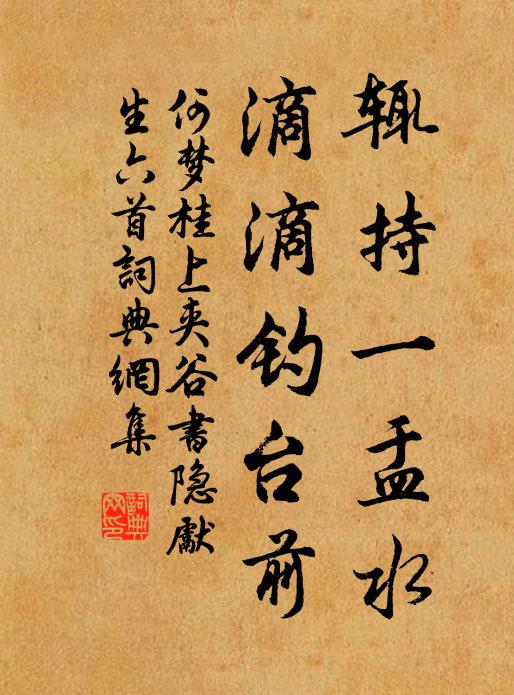 辄持一盂水
滴滴钓台前
何梦桂上夹谷書隐獻
生六首詞典網集
詞典網印